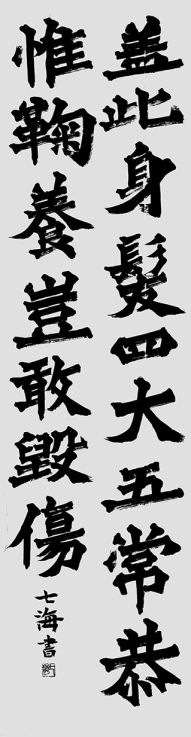 盖此身髮四大五常恭
惟鞠養豈敢毀傷
七海書